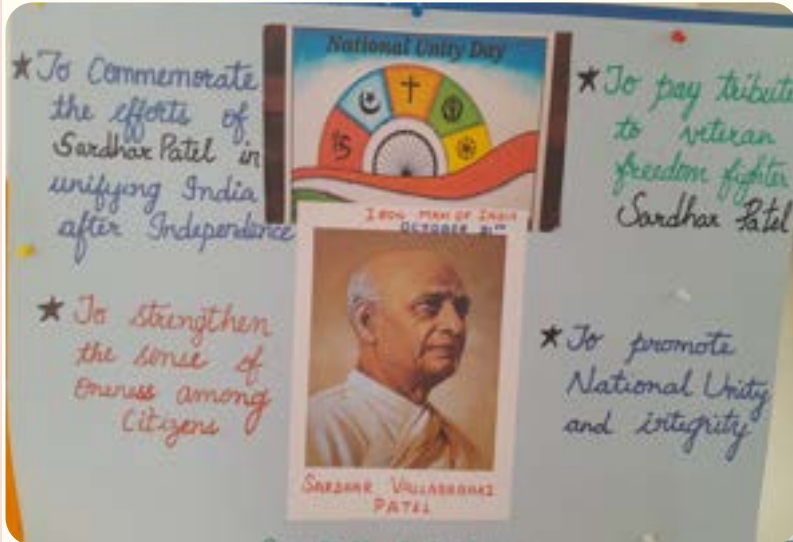 National Unity Day
★ To Commemorate
the efforts of
Sardhar Patel in
unifying India
after Independence
★ To pay tribute
to veteran
freedom fighter
Sardhar Patel
IRON MAN OF INDIA
OCTOBER 31ST
★ To strengthen
the sense of
Oneness among
Citizens
★ To promote
National Unity
and integrity
SARDHAR VALLABBHAI
PATEL